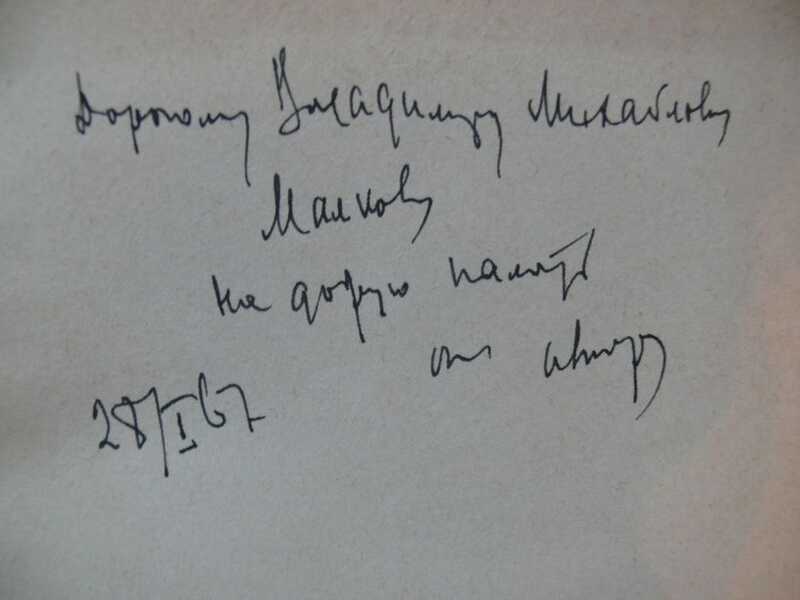 Дорогому Владимиру Михайлову
Малкову
на добрую память
от автора
28/I 67